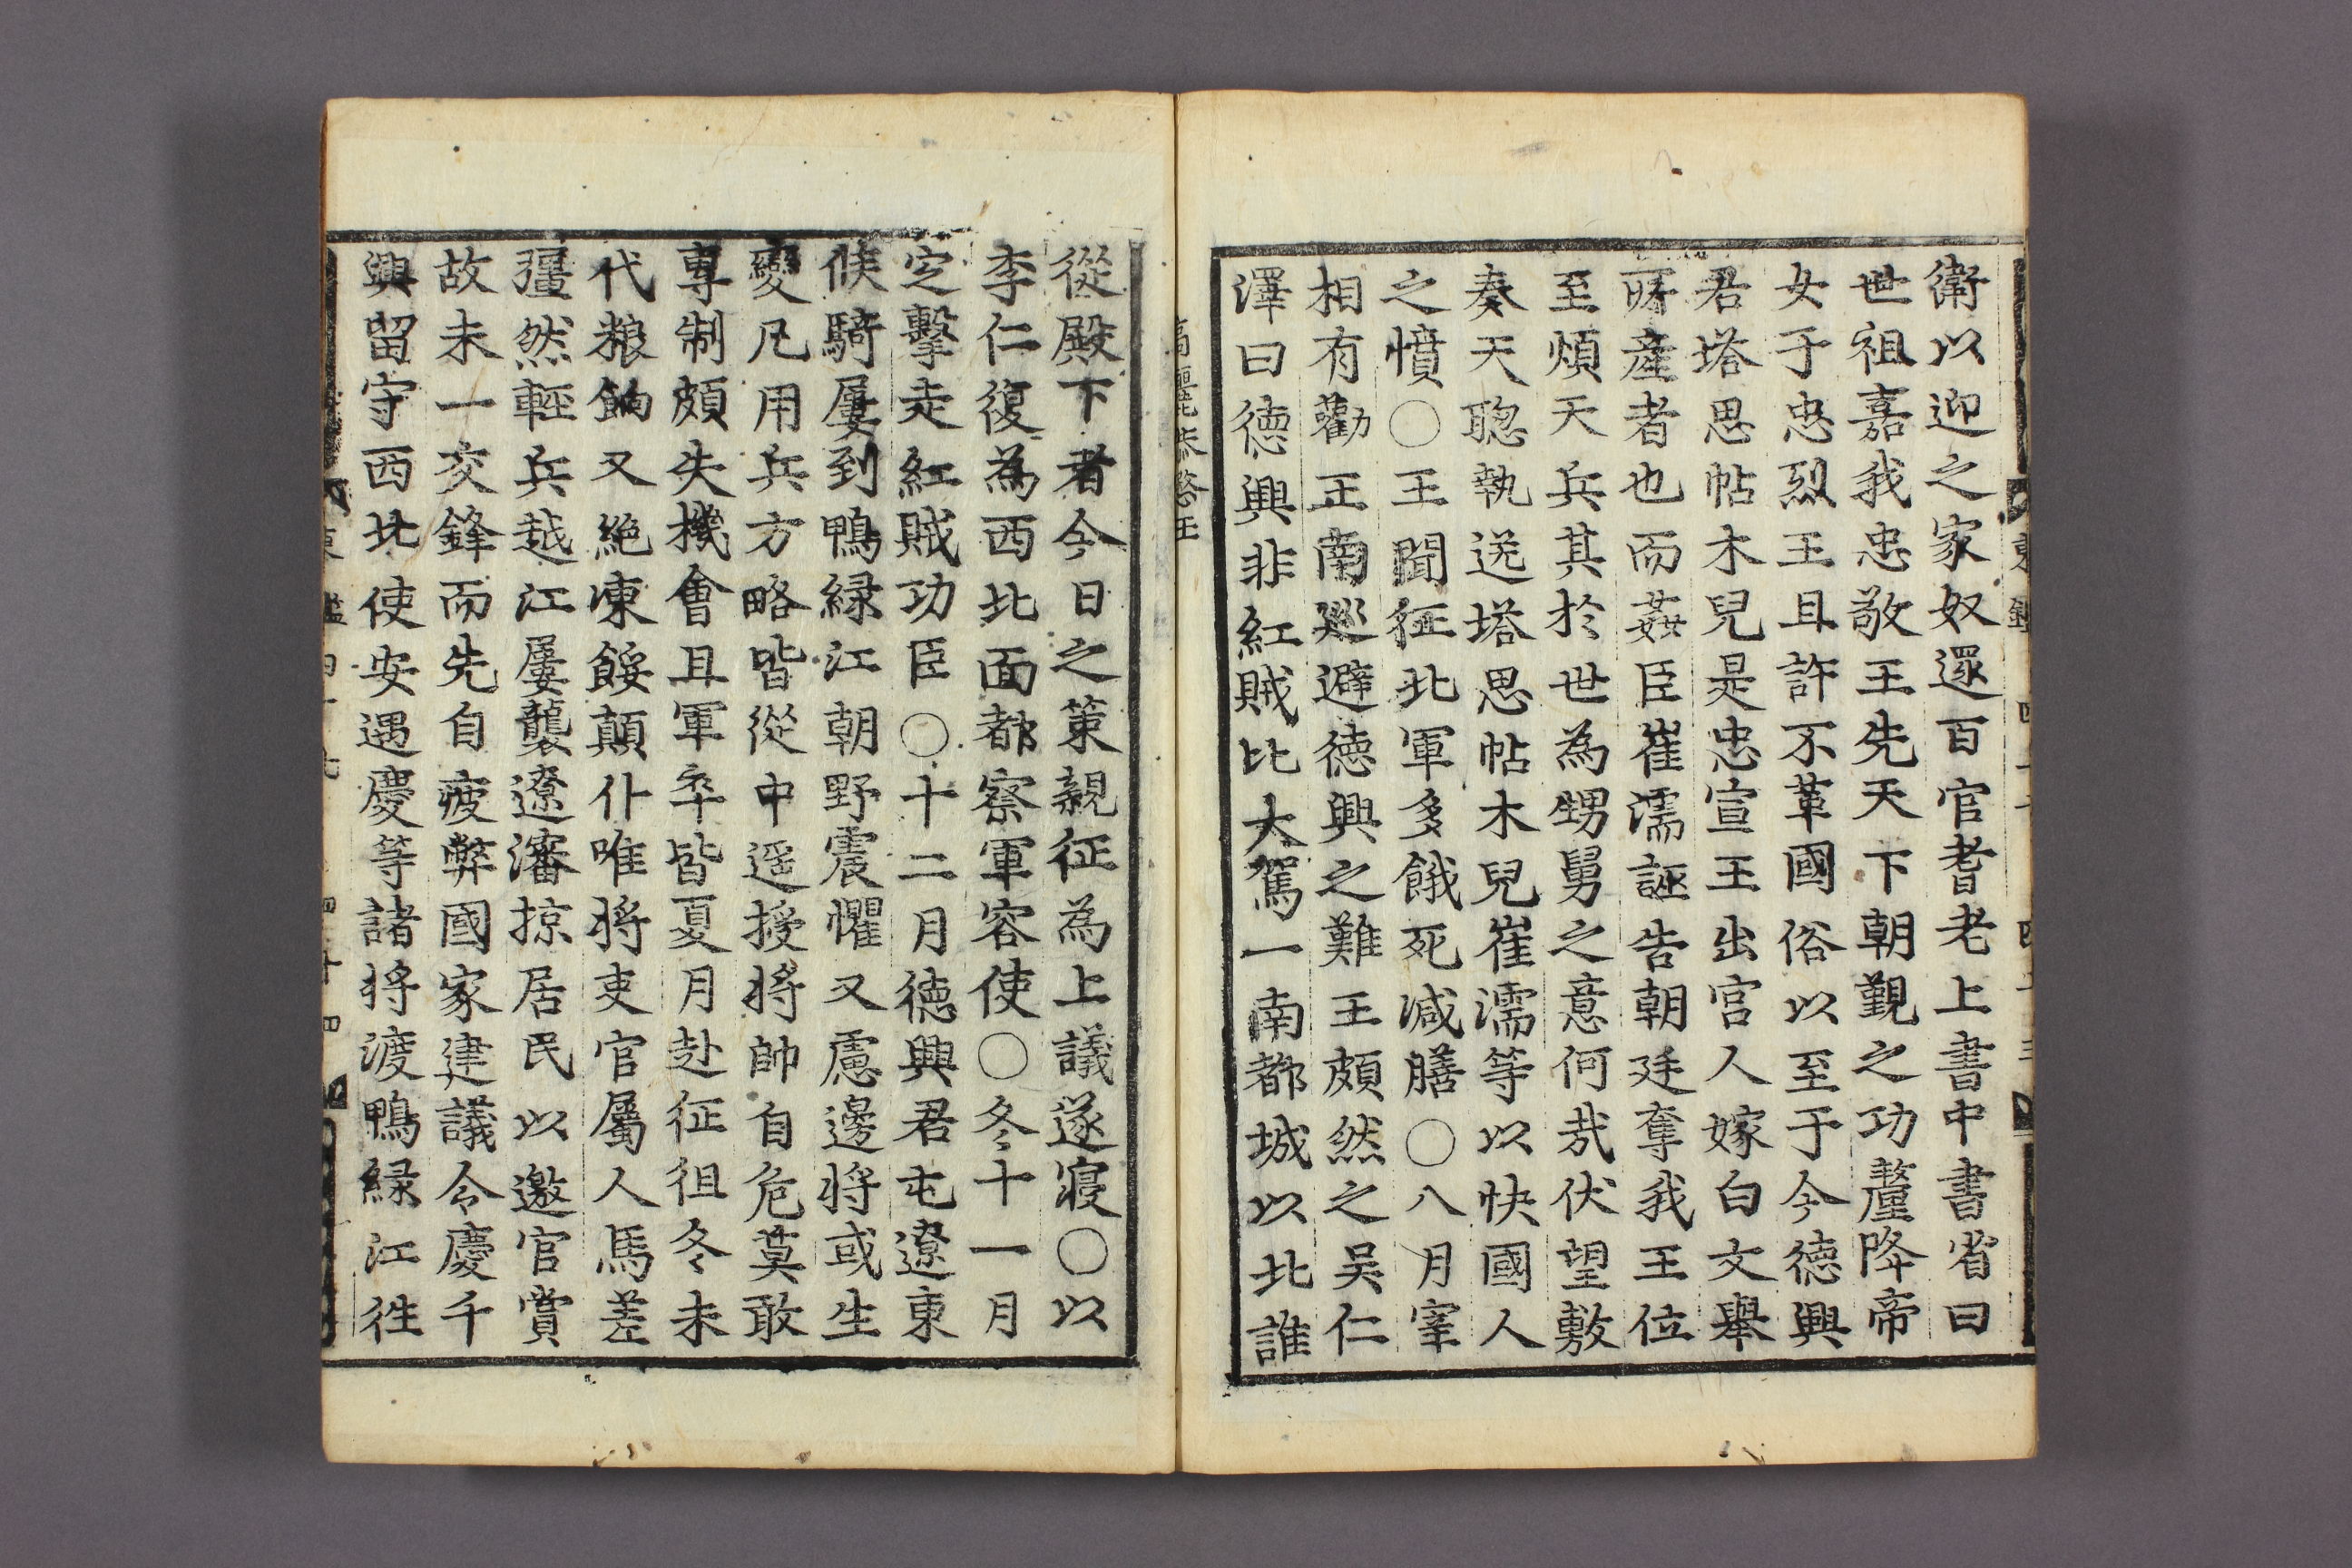 衛以迎之家奴還百官耆老上書中書省曰
世祖嘉我忠敬王先天下朝覲之功釐降帝
女于忠烈王且許不革國俗以至于今德興
君塔思帖木兒是忠宣王出宮人嫁白文舉
所產者也而姦臣崔濡誣告朝廷奪我王位
至煩天兵其於世為甥舅之意何㢤伏望敷
奏天聰執送塔思帖木兒崔濡等以快國人
之憤〇王聞征北軍多餓死减膳〇八月宰
相有勸王南廵避德興之難王頗然之吳仁
澤曰德興非紅賊比大駕一南都城以北誰
高麗恭愍王
從殿下者今日之策親征為上議遂寢〇以
李仁復為西北面都察軍容使〇冬十一月
定擊走紅賊功臣〇十二月德興君屯遼東
候騎屢到鴨綠江朝野震懼又慮邊將或生
變凡用兵方略皆從中遥授將帥自危莫敢
專制頗失機會且軍卒皆夏月赴征徂冬未
代粮餉又絶凍餒顛仆唯將吏官屬人馬差
彊然輕兵越江屢襲遼瀋掠居民以邀官賞
故未一交鋒而先自疲弊國家建議令慶千
興留守西北使安遇慶等諸將渡鴨綠江徃